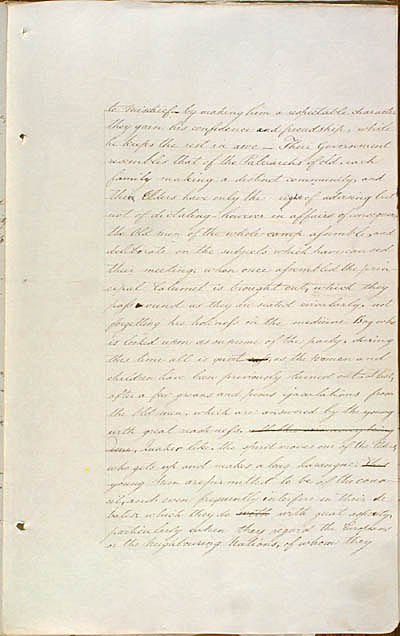 to mischief – by making him a respectable character
they gain his confidence and friendship, while
he keeps the rest in awe – Their Government
resembles that of the Patriarchs of old, each
family making a distinct community, and
their Elders have only the right of advising but
not of dictating – however in affairs of consequence
the Old men of the whole camp assemble and
deliberate on the subjects which have caused
their meeting. when once assembled the prin-
cipal Calumet is brought out, which they
pass round as they are seated circularly, not
forgetting his holiness in the medicine Bag who
is looked upon as supreme of the party. during
this time all is quiet as the Women and
children have been previously turned out. at last,
after a few groans and pious ejaculations from
the Old men, which are answered by the young
with great readiness,
Quaker like, the spirit moves one of the Elders
who gets up and makes a long harangue. The
young men are permitted to be of the coun-
cil, and even frequently interfere in their de
bates which they do with great
particularly when they regard the Europeans
or the Neighbouring Nations, of whom they